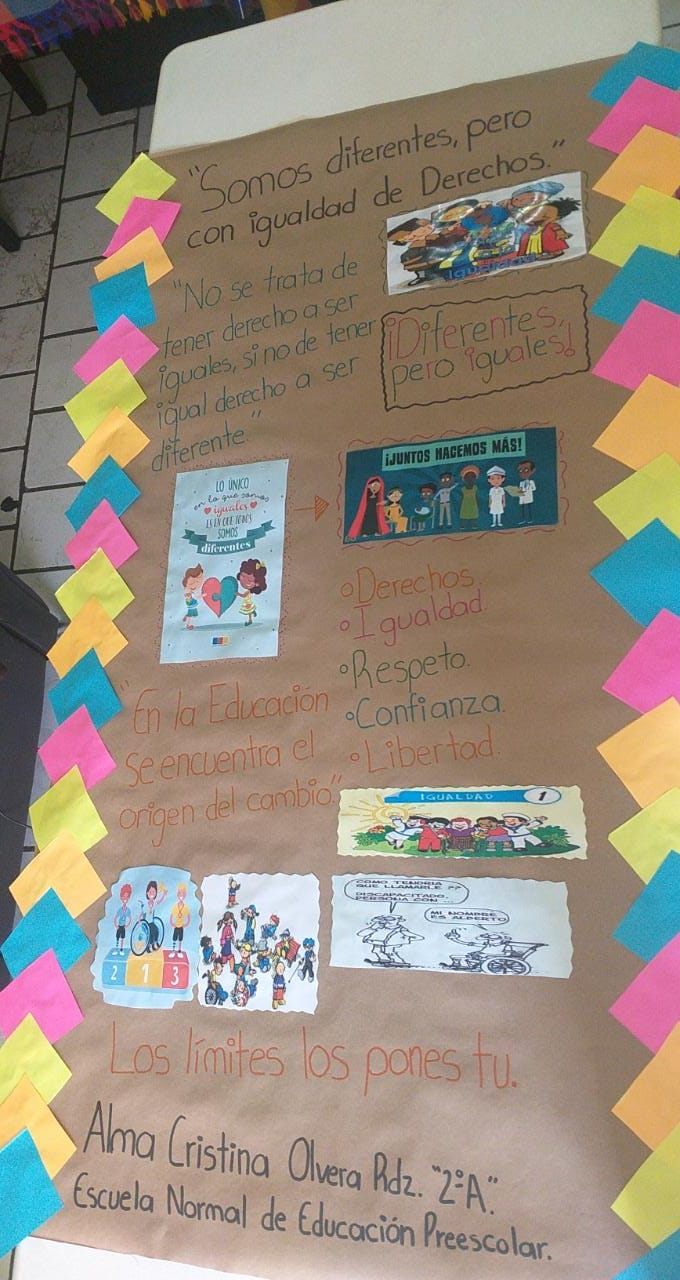 "Somos diferentes, pero
con igualdad de Derechos."
Igualdad
"No se trata de
tener derecho a ser
iguales, si no de tener
igual derecho a ser
diferente."
¡Diferentes,
pero iguales!
¡JUNTOS HACEMOS MÁS!
LO ÚNICO
en lo que somos
iguales
ES EN QUE TODOS
SOMOS
diferentes
°Derechos.
°Igualdad
°Respeto.
°Confianza.
°Libertad.
"En la Educación
se encuentra el
origen del cambio."
IGUALDAD 1
COMO TENDRIA
QUE LLAMARLE ??
DISCAPACITADO,
PERSONA CON ...
MI NOMBRE
ES ALBERTO
2 1 3
Los límites los pones tu.
Alma Cristina Olvera Rdz. "2°A".
Escuela Normal de Educación Preescolar.